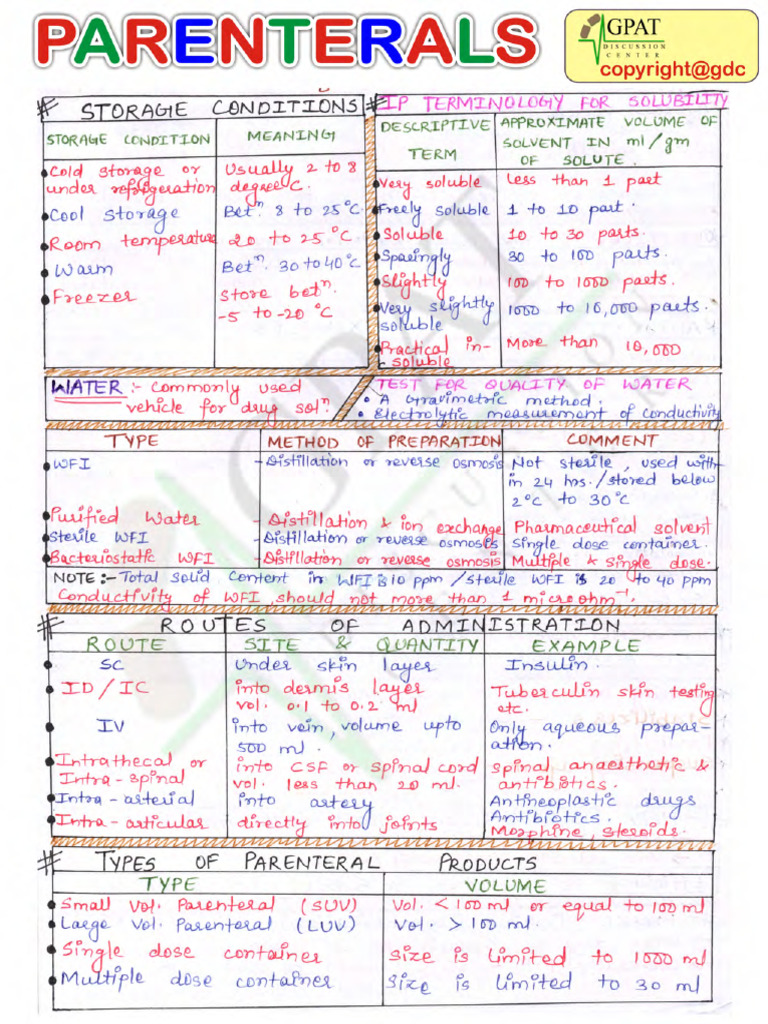 PARENTERALS
GPAT
DISCUSSION
CENTER
copyright@gdc
# STORAGE CONDITIONS
STORAGE CONDITION MEANING
Cold storage or Usually 2 to 8
under refrigeration degree C.
Cool Storage Betⁿ. 8 to 25°C.
Room temperature 20 to 25°C.
Warm Betⁿ. 30 to 40°C
Freezer Store betⁿ.
-5 to -20°C
# IP TERMINOLOGY FOR SOLUBILITY
DESCRIPTIVE APPROXIMATE VOLUME OF
TERM SOLVENT IN ml/gm
OF SOLUTE.
Very soluble Less than 1 part
Freely soluble 1 to 10 part.
Soluble 10 to 30 parts.
Sparingly 30 to 100 parts.
Slightly 100 to 1000 parts.
Very slightly 1000 to 10,000 parts.
soluble
Practical in- More than 10,000
-soluble
WATER :- Commonly used
vehicle for drug solⁿ.
TEST FOR QUALITY OF WATER
• A Gravimetric method.
• Electrolytic measurement of conductivity
TYPE METHOD OF PREPARATION COMMENT
WFI -Distillation or reverse osmosis Not sterile, used with-
in 24 hrs./stored below
2°C to 30°C
Purified Water - Distillation & ion exchange Pharmaceutical solvent
Sterile WFI -Distillation or reverse osmosis Single dose container.
Bacteriostatic WFI -Distillation or reverse osmosis Multiple & single dose.
NOTE :- Total solid content in WFI is 10 ppm / sterile WFI is 20 to 40 ppm
Conductivity of WFI should not more than 1 micro ohm⁻¹.
# ROUTES OF ADMINISTRATION
ROUTE SITE & QUANTITY EXAMPLE
SC Under skin layer Insulin.
ID / IC into dermis layer Tuberculin skin testing
vol. 0.1 to 0.2 ml etc.
IV into vein, volume upto Only aqueous prepar-
500 ml. ation.
Intrathecal or into CSF or spinal cord spinal anaesthetic &
Intra-spinal vol. less than 20 ml. antibiotics.
Intra-arterial into artery Antineoplastic drugs
Antibiotics.
Intra-articular directly into joints Morphine, steroids.
# TYPES OF PARENTERAL PRODUCTS
TYPE VOLUME
Small Vol. Parenteral (SUV) Vol. < 100 ml or equal to 100 ml
Large Vol. Parenteral (LUV) Vol. > 100 ml.
Single dose container Size is limited to 1000 ml
Multiple dose container Size is limited to 30 ml